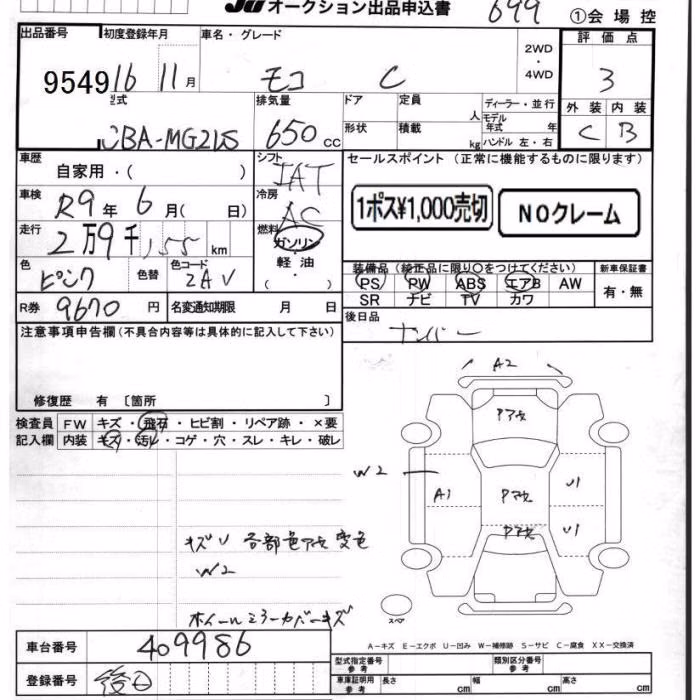 JU オークション出品申込書 699 ①会場控
出品番号 初度登録年月 車名・グレード 2WD・4WD 評価点
9549 16 11月 モコ C 3
型式 排気量 ドア 定員 人 ディーラー・並行 外装 内装
CBA-MG21S 650cc 形状 積載 kg モデル年式 年 ハンドル 左・右 C B
車歴 自家用・( ) シフト IAT セールスポイント (正常に機能するものに限ります)
車検 R9年 6月( 日) 冷房 AC 1ポス¥1,000売切 NOクレーム
走行 2万9千155km 燃料 ガソリン・軽油・( )
色 ピンク 色替 色コード ZAV 装備品 (純正品に限り○をつけてください) 新車保証書
PS PW ABS エアB AW 有・無
SR ナビ TV カワ
R券 9670円 名変通知期限 月 日 後日品
注意事項申告欄(不具合内容等は具体的に記入して下さい) ナンバー
修復歴 有 〔箇所 〕
A2
検査員 FW キズ・飛石・ヒビ割・リペア跡・×要
記入欄 内装 キズ・汚レ・コゲ・穴・スレ・キレ・破レ
Pアセ
W2
A1 Pアセ U1
Pアセ U1
キズU 各部色アセ変色
W2
ホイールミラーカバーキズ
スペア
A-キズ E-エクボ U-凹み W-補修跡 S-サビ C-腐食 XX-交換済
車台番号 409986
型式指定番号 参考 類別区分番号 参考
登録番号 後日
車庫証明用 参考 長さ cm 幅 cm 高さ cm